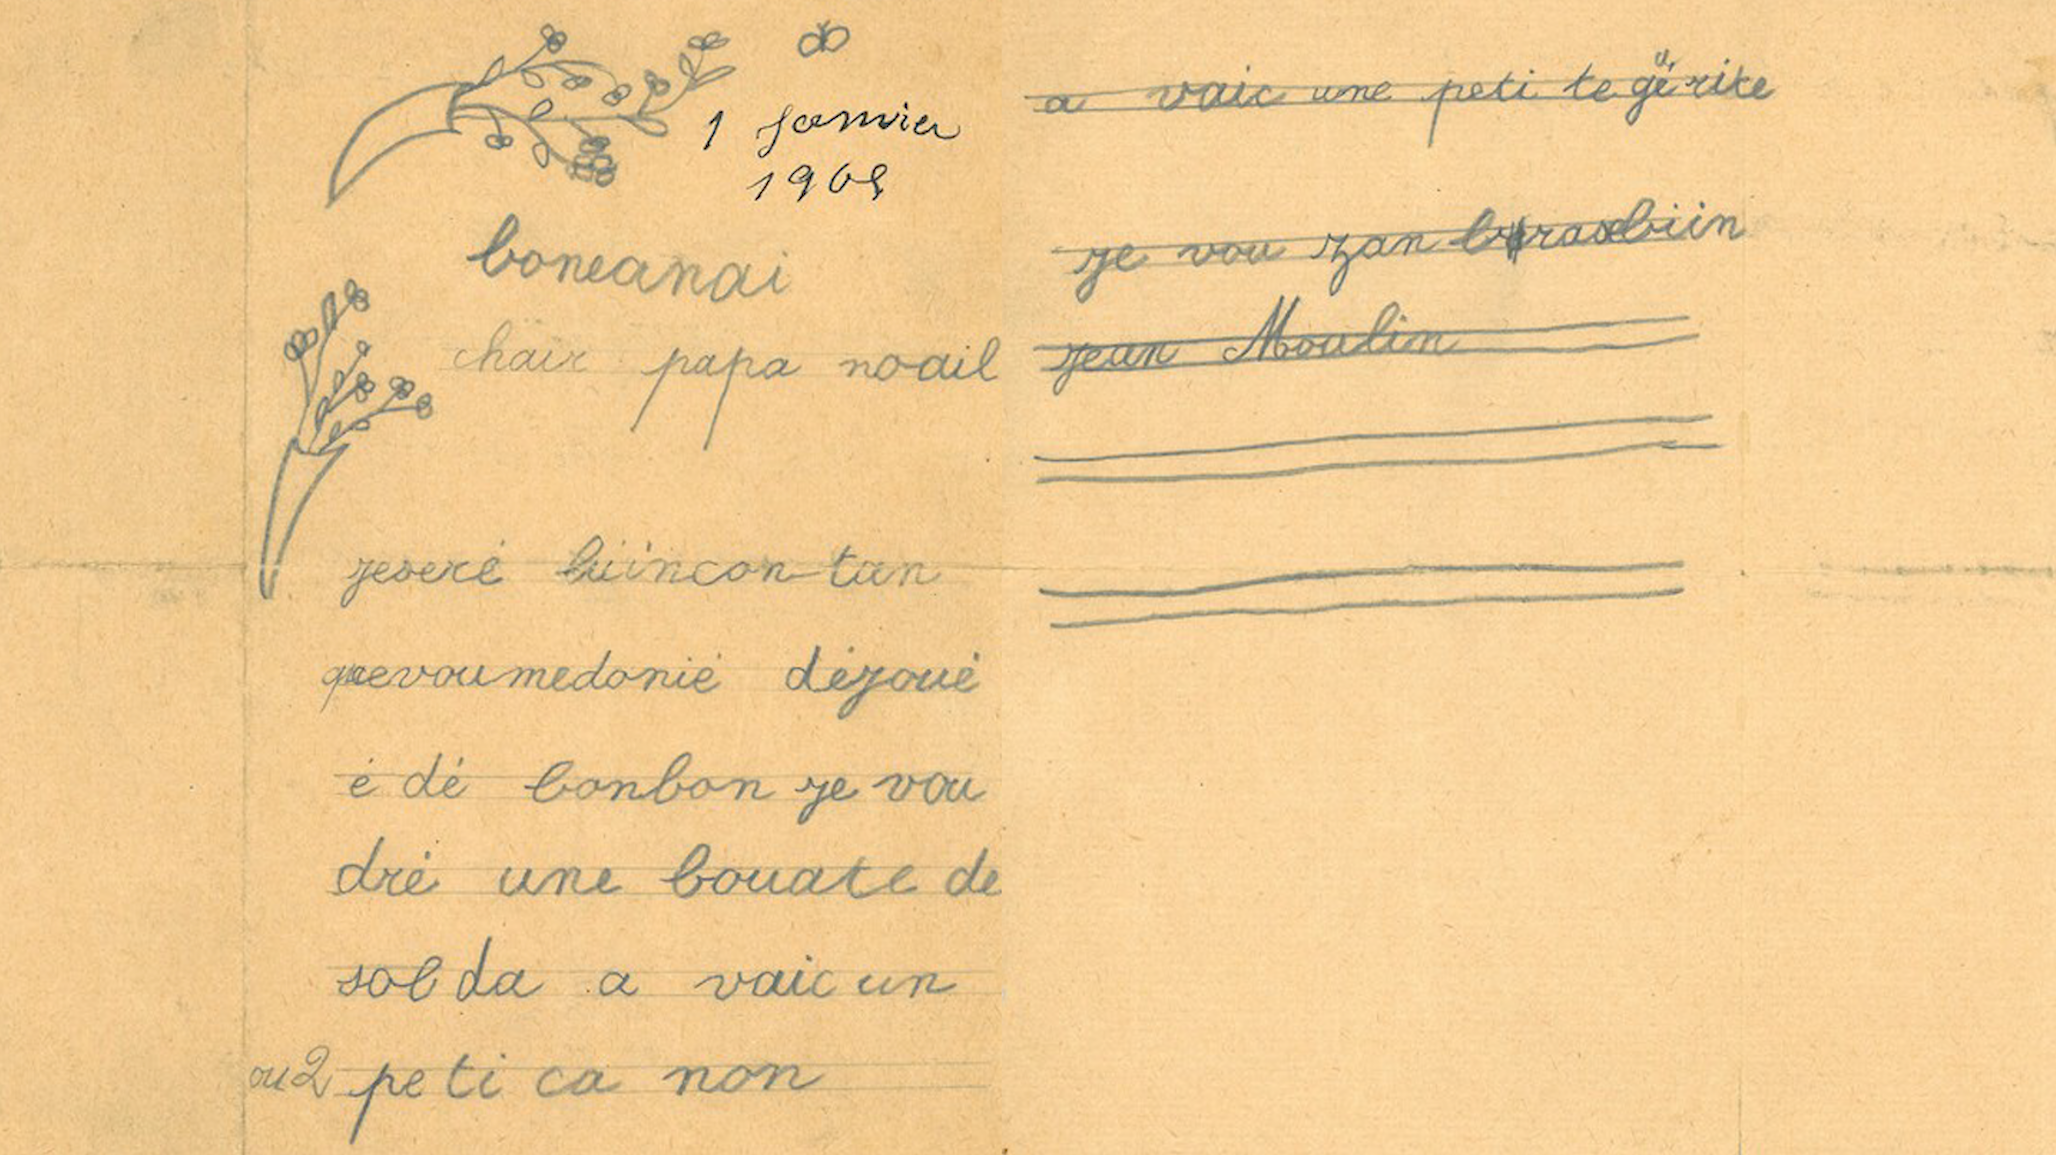 1 Janvier
1908
boneanai
chair papa noail
jeseré biincontan
quevoumedonié déjoué
é dé bonbon je vou
dré une bouate de
solda a vaic un
ou 2 peti ca non
a vaic une peti te gérite
je vou zan brasebiin
jean Moulin